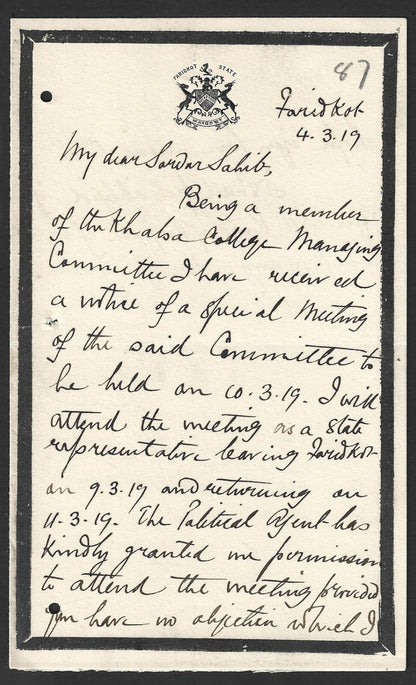 87
FARIDKOT STATE
Faridkot
4.3.19
My dear Sardar Sahib,
Being a member
of the Khalsa College Managing
Committee I have received
a notice of a special Meeting
of the said Committee to
be held on 10.3.19. I will
attend the meeting as a State
representative leaving Faridkot
on 9.3.19 and returning on
11.3.19. The Political Agent has
kindly granted me permission
to attend the meeting provided
you have no objection which I